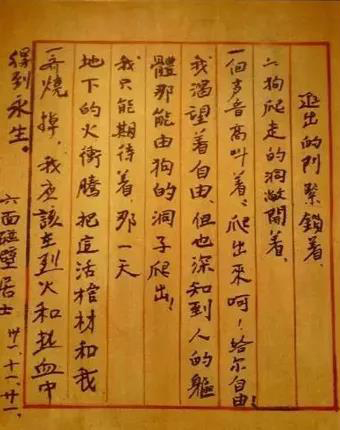 出的門緊鎖着、
狗爬走的洞敞開着、
一個声音高叫着、爬出來呵！給尔自由！
我渴望着自由、但也深知到人的軀
體那能由狗的洞子爬出！
我只能期待着、那一天
地下的火衝騰把這活棺材和我
一齊燒掉，我应該在烈火和热血中
得到永生。
六面碰壁居士 卅一.十一.廿一.